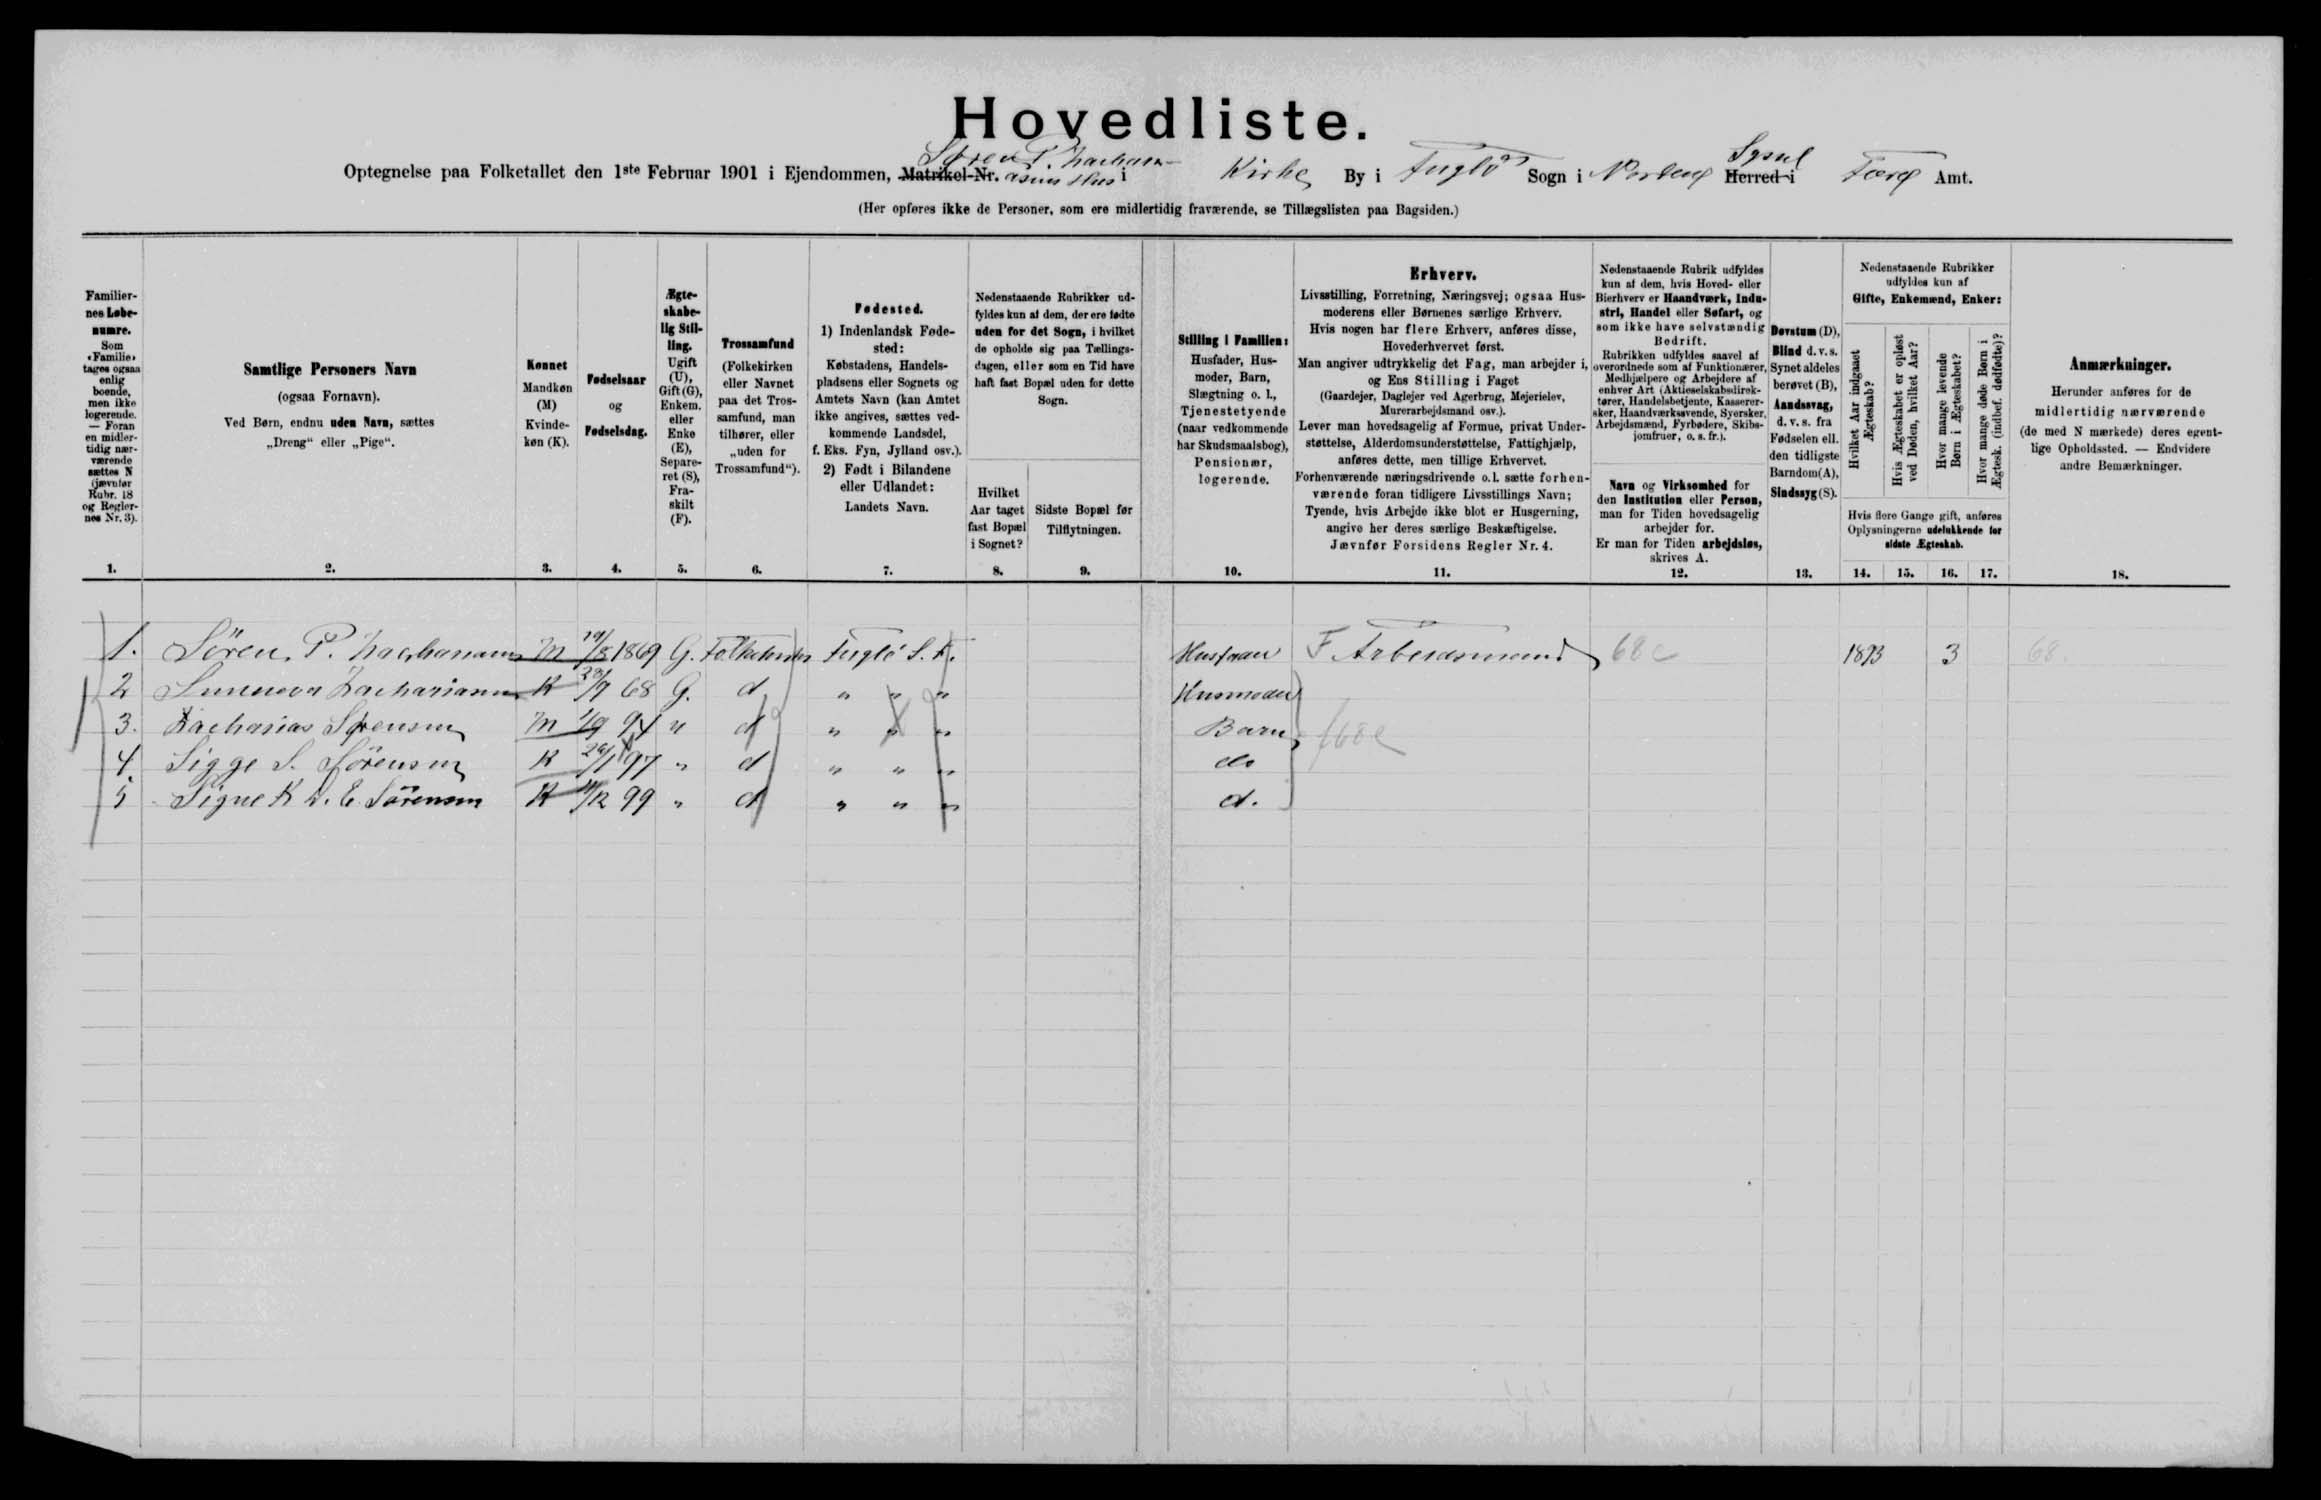 Hovedliste.
Optegnelse paa Folketallet den 1ste Februar 1901 i Ejendommen, Matrikel-Nr. Søren P. Zachariasens Hus i Kirke By i Fuglø Sogn i Norderø Syssel Herred i Færø Amt.
(Her opføres ikke de Personer, som ere midlertidig fraværende, se Tillægslisten paa Bagsiden.)
Familiernes Løbenumre.
Som «Familie» tages ogsaa enlig boende, men ikke logerende. — Foran en midlertidig nærværende sættes N (jævnfør Rubr. 18 og Reglernes Nr. 3).
1.
Samtlige Personers Navn
(ogsaa Fornavn).
Ved Børn, endnu uden Navn, sættes „Dreng“ eller „Pige“.
2.
Kønnet
Mandkøn (M)
Kvindekøn (K).
3.
Fødselsaar og Fødselsdag.
4.
Ægteskabelig Stilling.
Ugift (U), Gift (G), Enkem. eller Enke (E), Separeret (S), Fraskilt (F).
5.
Trossamfund
(Folkekirken eller Navnet paa det Trossamfund, man tilhører, eller „uden for Trossamfund“).
6.
Fødested.
1) Indenlandsk Fødested:
Købstadens, Handelspladsens eller Sognets og Amtets Navn (kan Amtet ikke angives, sættes vedkommende Landsdel, f. Eks. Fyn, Jylland osv.).
2) Født i Bilandene eller Udlandet:
Landets Navn.
7.
Nedenstaaende Rubrikker udfyldes kun af dem, der ere fødte uden for det Sogn, i hvilket de opholde sig paa Tællingsdagen, eller som en Tid have haft fast Bopæl uden for dette Sogn.
Hvilket Aar taget fast Bopæl i Sognet?
8.
Sidste Bopæl før Tilflytningen.
9.
Stilling i Familien:
Husfader, Husmoder, Barn, Slægtning o. l., Tjenestetyende (naar vedkommende har Skudsmaalsbog), Pensionær, logerende.
10.
Erhverv.
Livsstilling, Forretning, Næringsvej; ogsaa Husmoderens eller Børnenes særlige Erhverv.
Hvis nogen har flere Erhverv, anføres disse, Hovederhvervet først.
Man angiver udtrykkelig det Fag, man arbejder i, og Ens Stilling i Faget
(Gaardejer, Daglejer ved Agerbrug, Mejerielev, Murerarbejdsmand osv.).
Lever man hovedsagelig af Formue, privat Understøttelse, Alderdomsunderstøttelse, Fattighjælp, anføres dette, men tillige Erhvervet.
Forhenværende næringsdrivende o. l. sætte forhenværende foran tidligere Livsstillings Navn; Tyende, hvis Arbejde ikke blot er Husgerning, angive her deres særlige Beskæftigelse.
Jævnfør Forsidens Regler Nr. 4.
11.
Nedenstaaende Rubrik udfyldes kun af dem, hvis Hoved- eller Bierhverv er Haandværk, Industri, Handel eller Søfart, og som ikke have selvstændig Bedrift.
Rubrikken udfyldes saavel af overordnede som af Funktionærer, Medhjælpere og Arbejdere af enhver Art (Aktieselskabsdirektører, Handelsbetjente, Kasserersker, Haandværkssvende, Syersker, Arbejdsmænd, Fyrbødere, Skibsjomfruer, o. s. fr.).
Navn og Virksomhed for den Institution eller Person, man for Tiden hovedsagelig arbejder for.
Er man for Tiden arbejdsløs, skrives A.
12.
Døvstum (D),
Blind d. v. s. Synet aldeles berøvet (B),
Aandssvag, d. v. s. fra Fødselen ell. den tidligste Barndom (A),
Sindssyg (S).
13.
Nedenstaaende Rubrikker udfyldes kun af
Gifte, Enkemænd, Enker:
Hvilket Aar indgaaet Ægteskab?
Hvis Ægteskabet er opløst ved Døden, hvilket Aar?
Hvor mange levende Børn i Ægteskabet?
Hvor mange døde Børn i Ægtesk. (indbef. dødfødte)?
Hvis flere Gange gift, anføres Oplysningerne udelukkende for sidste Ægteskab.
14. 15. 16. 17.
Anmærkninger.
Herunder anføres for de midlertidig nærværende (de med N mærkede) deres egentlige Opholdssted. — Endvidere andre Bemærkninger.
18.
1. Sören P. Zachariasen M 19/8 1869 G. Folkekirken Fuglö S. F. Husfader F Arbeidsmand 68 c 1893 3 68.
2 Sunneva Zachariasen K 28/9 68 G. d " " " Husmoder
3. Zacharias Sørensen M 1/9 94 " d " " " Barn 68 c
4 Sigge S. Sörensen K 26/1 97 " d " " " do
5 Signe K D. E. Sörensen K 11/12 99 " d " " " d.